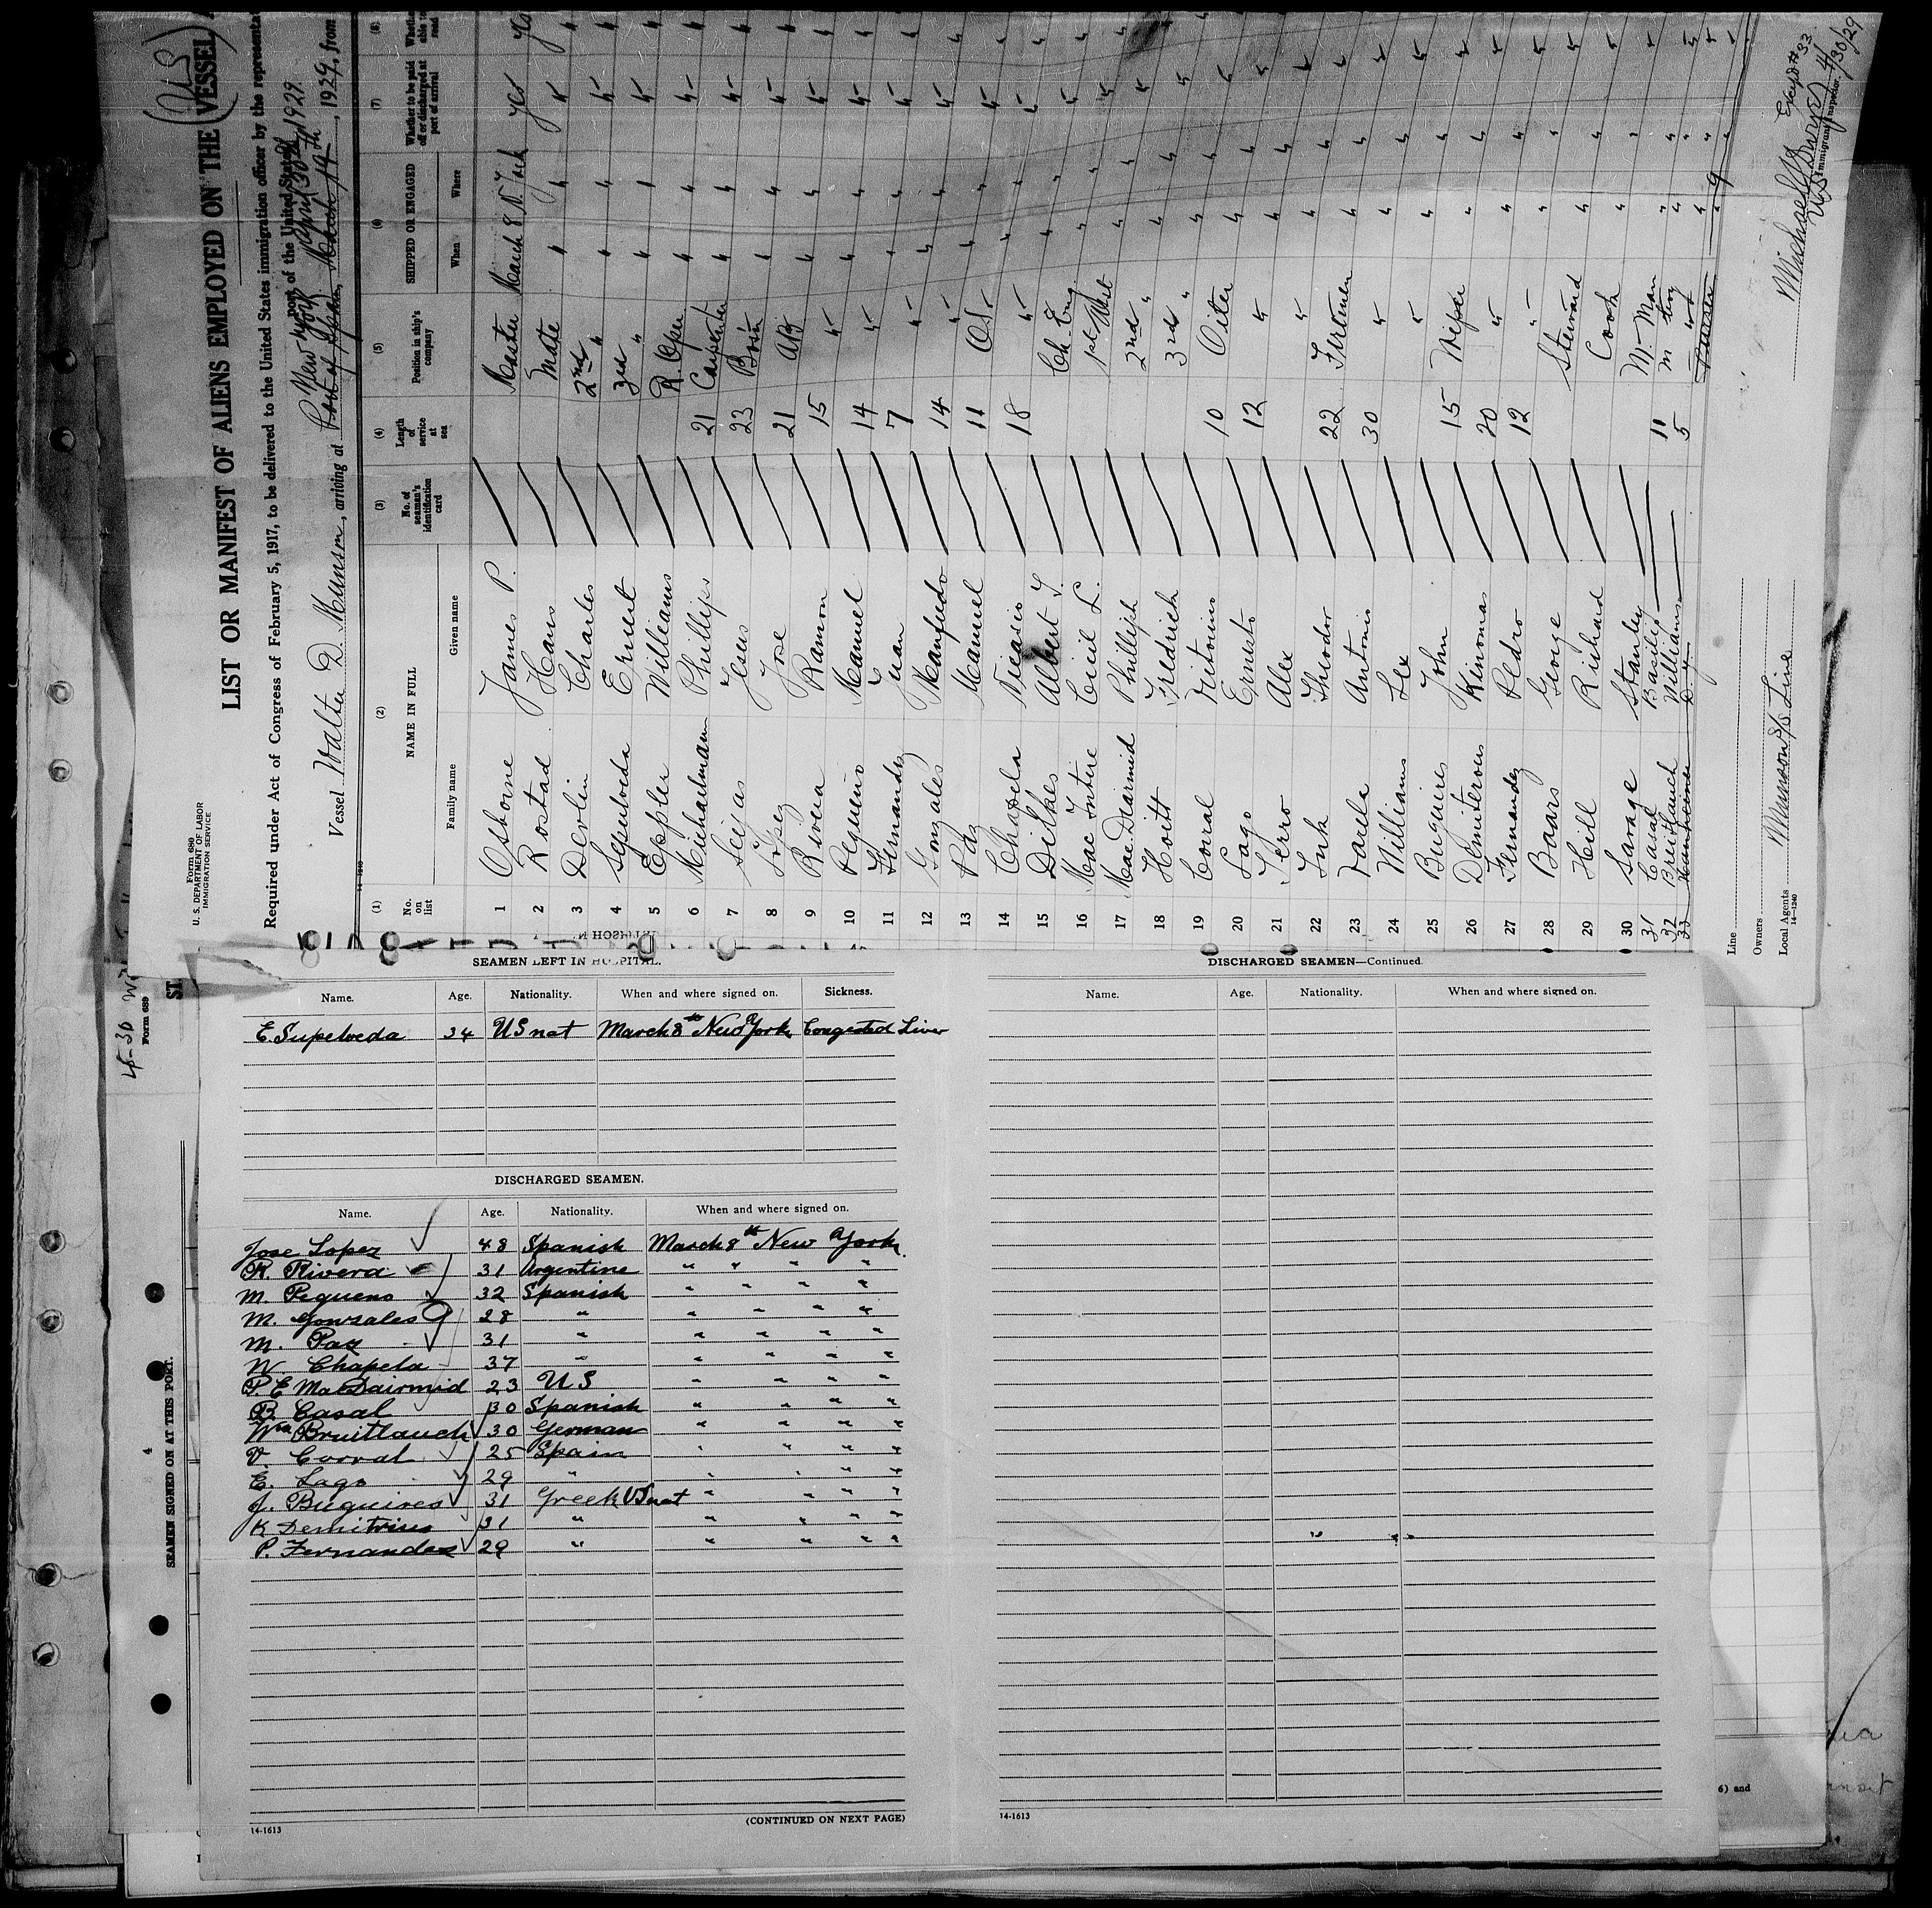 Form 680
U. S. DEPARTMENT OF LABOR
IMMIGRATION SERVICE
(US)
LIST OR MANIFEST OF ALIENS EMPLOYED ON THE VESSEL
Required under Act of Congress of February 5, 1917, to be delivered to the United States immigration officer by the representa
port of the United States
New York April 30th 1929
Vessel Walter D. Munson, arriving at Port of Spain, March 19th, 1929, from
14-1240
(1) (2) (3) (4) (5) (6) (7) (8)
No. on list
NAME IN FULL
Family name Given name
No. of seaman's identification card
Length of service at sea
Position in ship's company
SHIPPED OR ENGAGED
When Where
Whether to be paid off or discharged at port of arrival
Whether able to read
1 Osborne James P. Master March 8 N. York yes yes
2 Rostad Hans Mate " " " "
3 Devlin Charles 2nd " " " " "
4 Sepulveda Ernest 3rd " " " " "
5 Eppler Williams R. Oper " " " "
6 Michaelman Phillips 21 Carpenter " " " "
7 Seijas Jesus 23 Bos'n " " " "
8 Lopez Jose 21 AB " " " "
9 Rivera Ramon 15 " " " " "
10 Pequeno Manuel 14 " " " " "
11 Fernandez Juan 7 " " " " "
12 Gonzales Manfredo 14 " " " " "
13 Paz Manuel 11 OS " " " "
14 Chapela 18 " " " " "
15 Dilkes Albert T. Ch. Eng " " " "
16 Mac Inture Cecil L. 1st Asst " " " "
17 Mac Diarmid Phillip 2nd " " " " "
18 Hoitt Fredrich 3rd " " " " "
19 Coral 10 Oiler " " "
20 Lago Ernesto 12 " " " "
21 Ferro Alex " " " "
22 Ink Theodor 22 Firemen " " "
23 Varela Antonio 30 " " " "
24 Williams Lex " " " "
25 Buguires John 15 Wiper " " "
26 Demiterous Kinomas 20 " " " "
27 Fernandez Pedro 12 " " " "
28 Baars George Steward " " "
29 Hill Richard Cook " " "
30 Savage Stanley M. Man " " "
31 Casal Basilio 11 M Boy " " "
32 Breitlauch William 5 " " " "
33
Line
Owners
Local Agents Munson S/S Line
14-1240
Except #33
Michael
US Immigrant Inspector. 4/30/29
4-30
Form 689
4
SEAMEN SIGNED ON AT THIS PORT.
SEAMEN LEFT IN HOSPITAL.
Name. Age. Nationality. When and where signed on. Sickness.
E. Supelveda 34 US nat March 8th New York Congested Liver
DISCHARGED SEAMEN.
Name. Age. Nationality. When and where signed on.
Jose Lopez 48 Spanish March 8th New York.
R. Rivera 31 Argentine " " " "
M. Pequeno 32 Spanish " " " "
M. Gonzales 28 " " " " "
M. Paz 31 " " " " "
N. Chapela 37 " " " " "
P. E MacDairmid 23 US " " " "
B. Casal 30 Spanish " " " "
Wm Bruitlauch 30 German " " " "
V. Corral 25 Spain " " " "
E. Lago 29 " " " " "
J. Buguires 31 Greek US nat " " " "
K Demitrius 31 " " " " "
P. Fernandez 29 " " " " "
(CONTINUED ON NEXT PAGE)
14-1613
DISCHARGED SEAMEN—Continued.
Name. Age. Nationality. When and where signed on.
14-1613
6) and